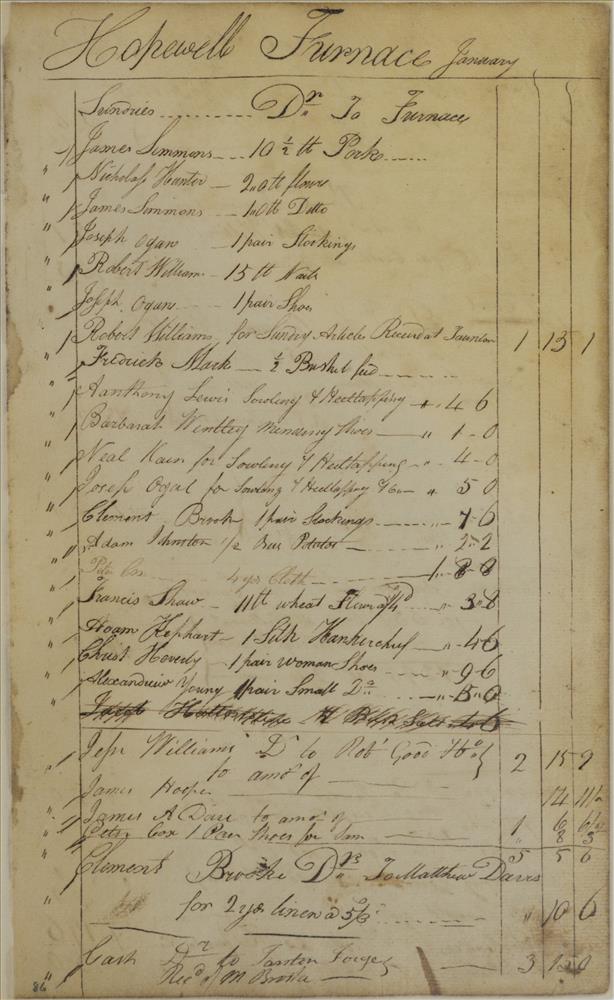 Hopewell Furnace January
Sundries Dr To Furnace
James Simmons 10 ½ lb Pork
Nicholas Hunter 20 lb flower
James Simmons 10 lb Ditto
Joseph Ogan 1 pair Stockings
Robert William 15 lb Nails
Joseph Ogan 1 pair Shoes
Robert Williams for Sundry Articles Received at Taunton 1 13 1
Fredrick Mark ½ Bushel
Aanthony Lewis Sowling & Heeltapping 4 6
Barbarah Wintley Mending Shoes 1-0
Neal Kain for Sowling & Heeltapping 4-0
Joseph Ogal for Sowling & Heeltapping 5 0
Clement Brook 1 pair Stockings 7-6
Adam Johnston ½ Potatos 2-2
4 yds Cloth 1 8-8
Francis Shaw 11 lb wheat Flower @ 4d 3-8
Adam Kephart 1 Silk Hankerchief 4-6
Christ Heverly 1 pair woman Shoes 9-6
Alexandrew Young 1 pair Small Do 5-0
Jesse Williams Dr to Robt Good 2 15 9
to amot of
James Hoofer 14
James A Dare to amot of 1 6
Peter Cox 1 Pair Shoes for 8 3
5 5 6
Clement Brooke Drs To Matthew Davis
for 2 yds linen @ 5/3 10 6
Cash Dr to Tanten Forge 3 0
Recd of M Brooke
86